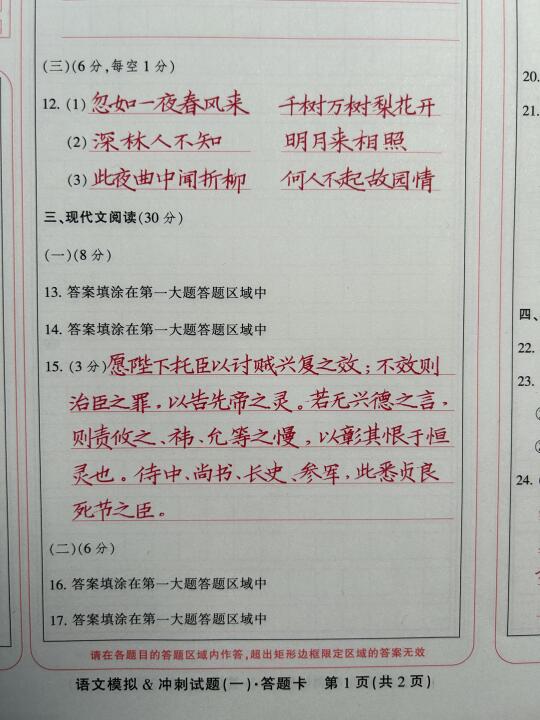 (三)(6分,每空1分)
20.
12. (1) 忽如一夜春风来 千树万树梨花开
21.
(2) 深林人不知 明月来相照
(3) 此夜曲中闻折柳 何人不起故园情
三、现代文阅读(30分)
(一)(8分)
13. 答案填涂在第一大题答题区域中
四、
14. 答案填涂在第一大题答题区域中
22.
15. (3分) 愿陛下托臣以讨贼兴复之效；不效则
23.
治臣之罪，以告先帝之灵。若无兴德之言，
则责攸之、祎、允等之慢，以彰其恨于恒
灵也。侍中、尚书、长史、参军，此悉贞良
24.
死节之臣。
(二)(6分)
16. 答案填涂在第一大题答题区域中
17. 答案填涂在第一大题答题区域中
请在各题目的答题区域内作答,超出矩形边框限定区域的答案无效
语文模拟&冲刺试题(一)·答题卡 第1页(共2页)